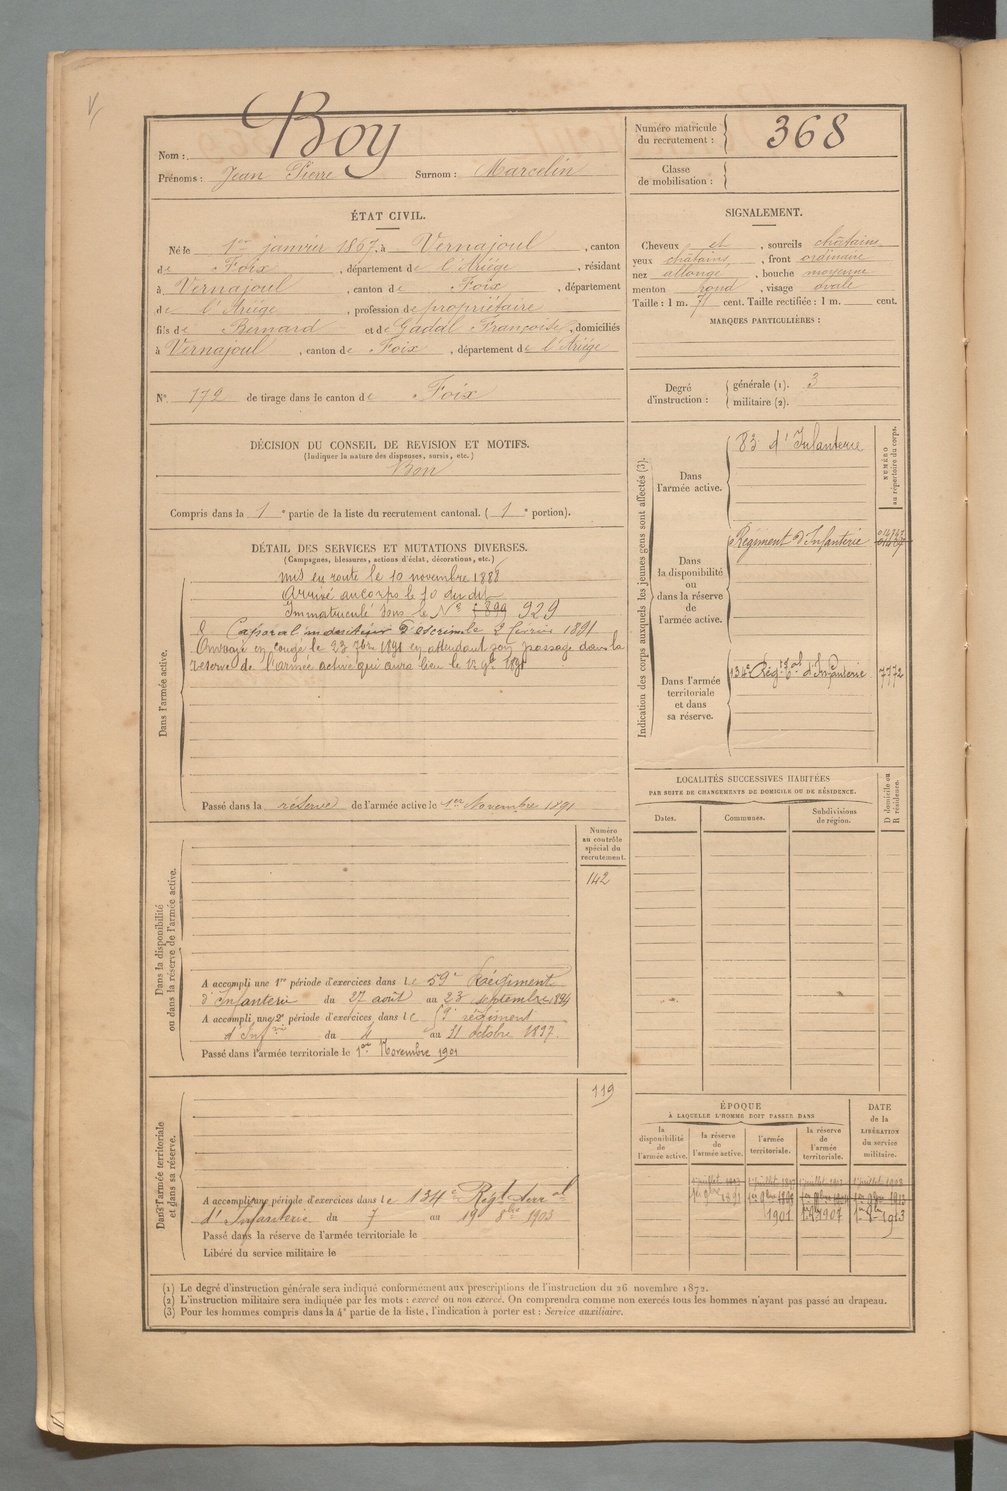 Nom : Boy
Prénoms : Jean Pierre Surnom : Marcelin
Numéro matricule du recrutement : 368
Classe de mobilisation :
ÉTAT CIVIL.
Né le 1er janvier 1867, à Vernajoul, canton
de Foix, département de l'Ariège, résidant
à Vernajoul, canton de Foix, département
de l'Ariège, profession de propriétaire
fils de Bernard et de Gadal Françoise, domiciliés
à Vernajoul, canton de Foix, département de l'Ariège
SIGNALEMENT.
Cheveux et, sourcils châtains
yeux châtains, front ordinaire
nez allongé, bouche moyenne
menton rond, visage ovale
Taille : 1 m. 71 cent. Taille rectifiée : 1 m. cent.
MARQUES PARTICULIÈRES :
N° 172 de tirage dans le canton de Foix
Degré d'instruction : générale (1). 3
militaire (2).
DÉCISION DU CONSEIL DE REVISION ET MOTIFS.
(Indiquer la nature des dispenses, sursis, etc.)
Bon
Compris dans la 1e partie de la liste du recrutement cantonal. (1e portion).
DÉTAIL DES SERVICES ET MUTATIONS DIVERSES.
(Campagnes, blessures, actions d'éclat, décorations, etc.)
Dans l'armée active.
mis en route le 10 novembre 1888
Arrivé au corps le 10 du dit
Immatriculé sous le N° 899 929
Caporal moniteur d'escrime le 2 février 1891
Envoyé en congé le 23 7bre 1891 en attendant son passage dans la
réserve de l'armée active qui aura lieu le 1er 9bre 1891
Passé dans la réserve de l'armée active le 1er Novembre 1891
Indication des corps auxquels les jeunes gens sont affectés (3).
NUMÉRO au répertoire du corps.
Dans l'armée active.
83 d'Infanterie
Dans la disponibilité ou dans la réserve de l'armée active.
Régiment d'Infanterie
Dans l'armée territoriale et dans sa réserve.
134e Régt Tal d'Infanterie 7772
LOCALITÉS SUCCESSIVES HABITÉES
PAR SUITE DE CHANGEMENTS DE DOMICILE OU DE RÉSIDENCE.
D domicile ou R résidence.
Dates. Communes. Subdivisions de région.
Dans la disponibilité ou dans la réserve de l'armée active.
Numéro au contrôle spécial du recrutement.
142
A accompli une 1re période d'exercices dans le 59e Régiment
d'Infanterie du 27 août au 23 septembre 1894
A accompli une 2e période d'exercices dans le 59e régiment
d'Infrie du 4 au 31 octobre 1897.
Passé dans l'armée territoriale le 1er Novembre 1901
Dans l'armée territoriale et dans sa réserve.
119
A accompli une période d'exercices dans le 134e Régt terral
d'Infanterie du 7 au 19 8bre 1903
Passé dans la réserve de l'armée territoriale le
Libéré du service militaire le
ÉPOQUE
À LAQUELLE L'HOMME DOIT PASSER DANS
DATE de la LIBÉRATION du service militaire.
la disponibilité de l'armée active.
la réserve de l'armée active.
l'armée territoriale.
la réserve de l'armée territoriale.
1901 1er 9bre 1907 1er 9bre 1913
(1) Le degré d'instruction générale sera indiqué conformément aux prescriptions de l'instruction du 26 novembre 1872.
(2) L'instruction militaire sera indiquée par les mots : exercé ou non exercé. On comprendra comme non exercés tous les hommes n'ayant pas passé au drapeau.
(3) Pour les hommes compris dans la 4e partie de la liste, l'indication à porter est : Service auxiliaire.